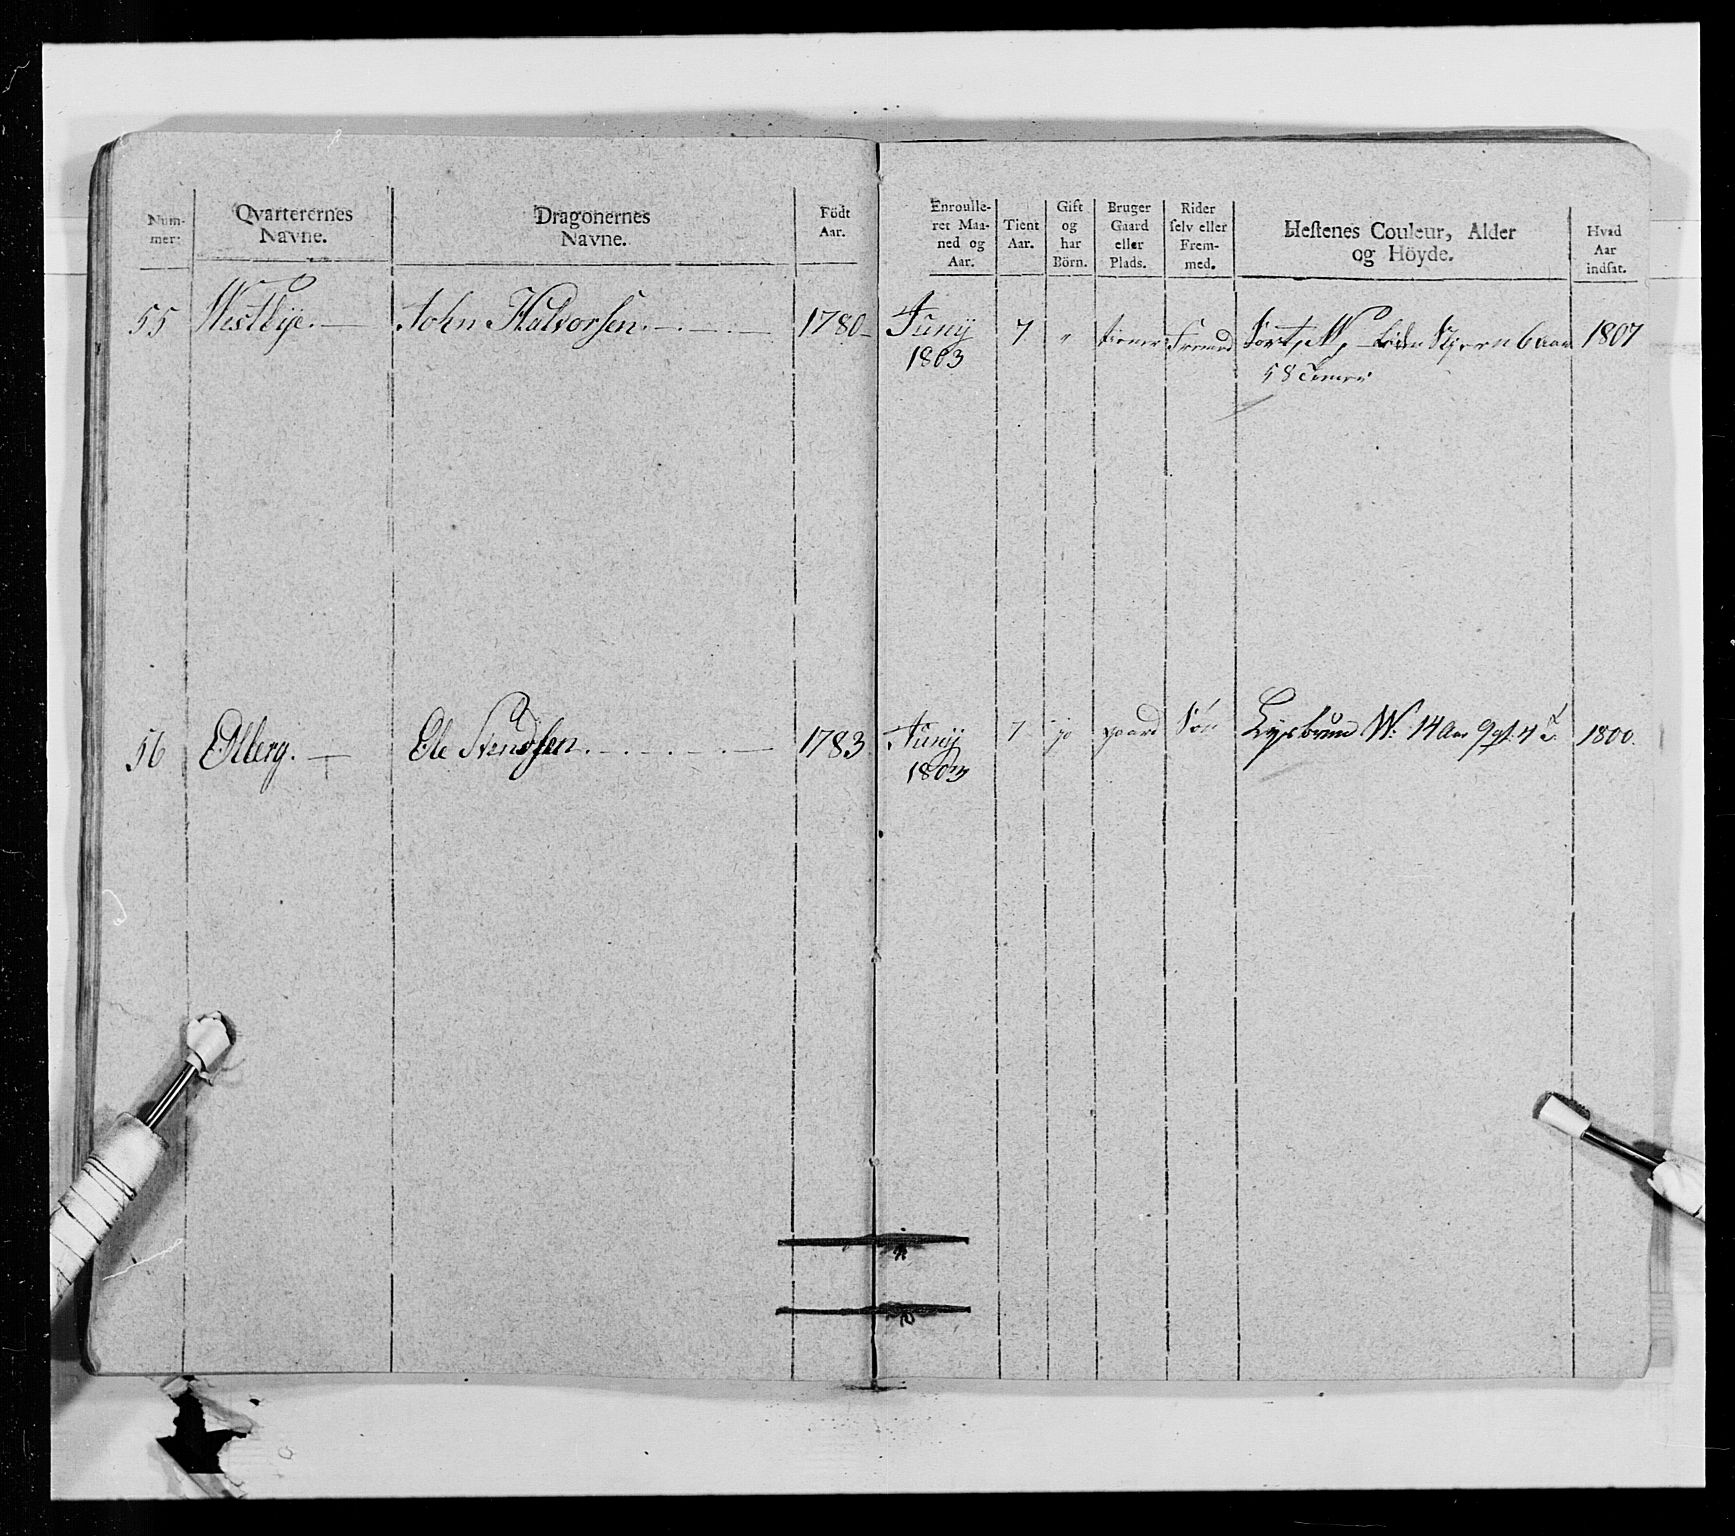 Num-
mer:
Qvarterernes
Navne.
Dragonernes
Navne.
Födt
Aar.
Enroulle-
ret Maa-
ned og
Aar.
Tient
Aar.
Gift
og
har
Börn.
Bruger
Gaard
eller
Plads.
Rider
ſelv eller
Frem-
med.
Heſtenes Couleur, Alder
og Höyde.
Hvad
Aar
indſat.
55 Westbye. John Halvorsen. 1780 Junij 7 " tiener Fremed Sort, W, liden Stiern 6 aar 1807
1803
58
56 Ole Svendsen. 1783 Junij 7 jo gaard Lysbrun W: 14 Aar 9 qt: 4 T. 1800.
1803